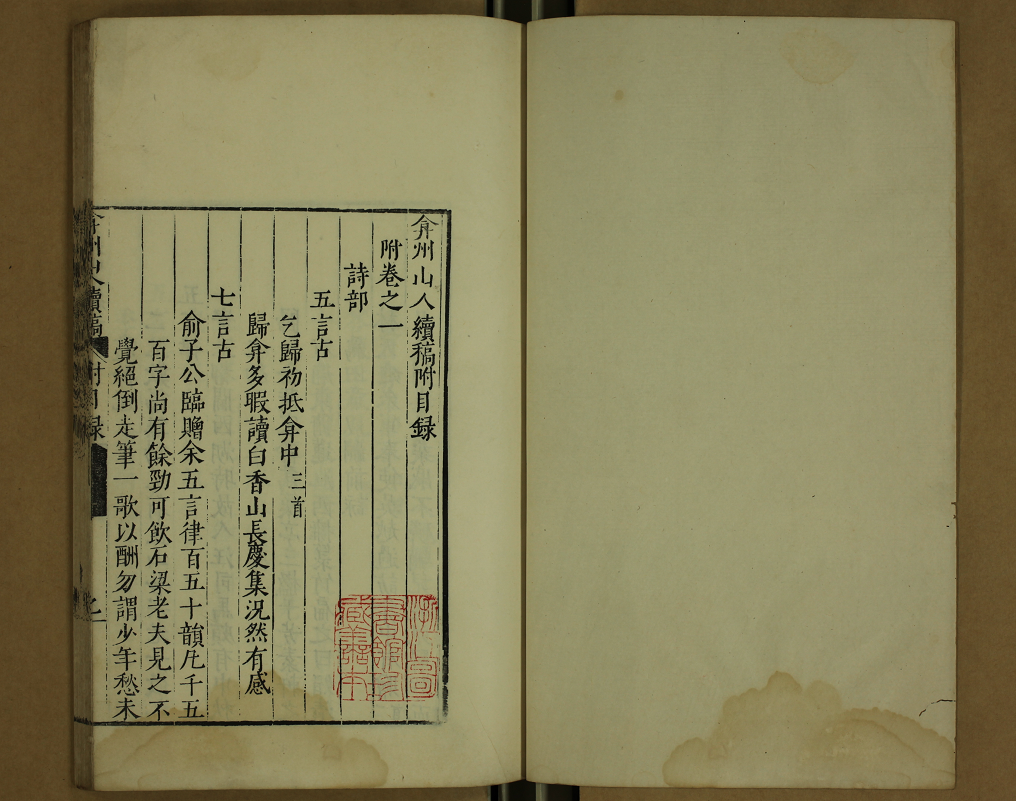 弇州山人續稿附目録
附卷之一
詩部
五言古
乞歸初抵弇中三首
歸弇多暇讀白香山長慶集況然有感
七言古
俞子公臨贈余五言律百五十韻凡千五
百字尚有餘勁可飲石梁老夫見之不
覺絕倒走筆一歌以酬勿謂少年愁未
弇州山人續稿 附目録
浙江圖
書館珍
藏善本